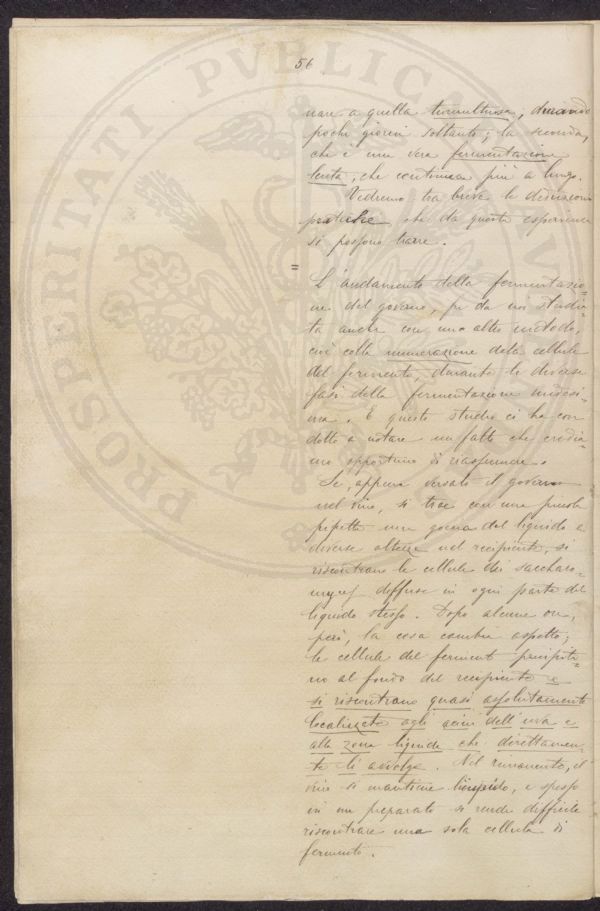 56
nare a quella tumultuosa, durando
pochi giorni soltanto; la seconda,
che è una vera fermentazione
lenta, che continua più a lungo.
Vedremo tra breve le deduzioni
pratiche che da queste esperienze
si possono trarre.
=
L'andamento della fermentazio=
ne del governo, fu da noi studia=
ta anche con uno altro metodo,
cioè colla numerazione delle cellule
del fermento, durante le diverse
fasi della fermentazione medesi=
ma. E questo studio ci ha con
dotto a notare un fatto che credia=
mo opportuno di riassumere.
Se, appena versato il governo
nel vino, si trae con una piccola
pipetta una goccia del liquido a
diverse altezze nel recipiente, si
riscontrano le cellule dei saccharo-
myces diffuse in ogni parte del
liquido stesso. Dopo alcune ore,
però, la cosa cambia aspetto;
le cellule del fermento precipita=
no al fondo del recipiente e
si riscontrano quasi assolutamente
localizzate agli acini dell'uva e
alla zona liquida che direttamen=
te li avvolge. Nel rimanente, il
vino si mantiene limpido, e spesso
in un preparato si rende difficile
riscontrare una sola cellula di
fermento.
PROSPERITATI PUBLICAE